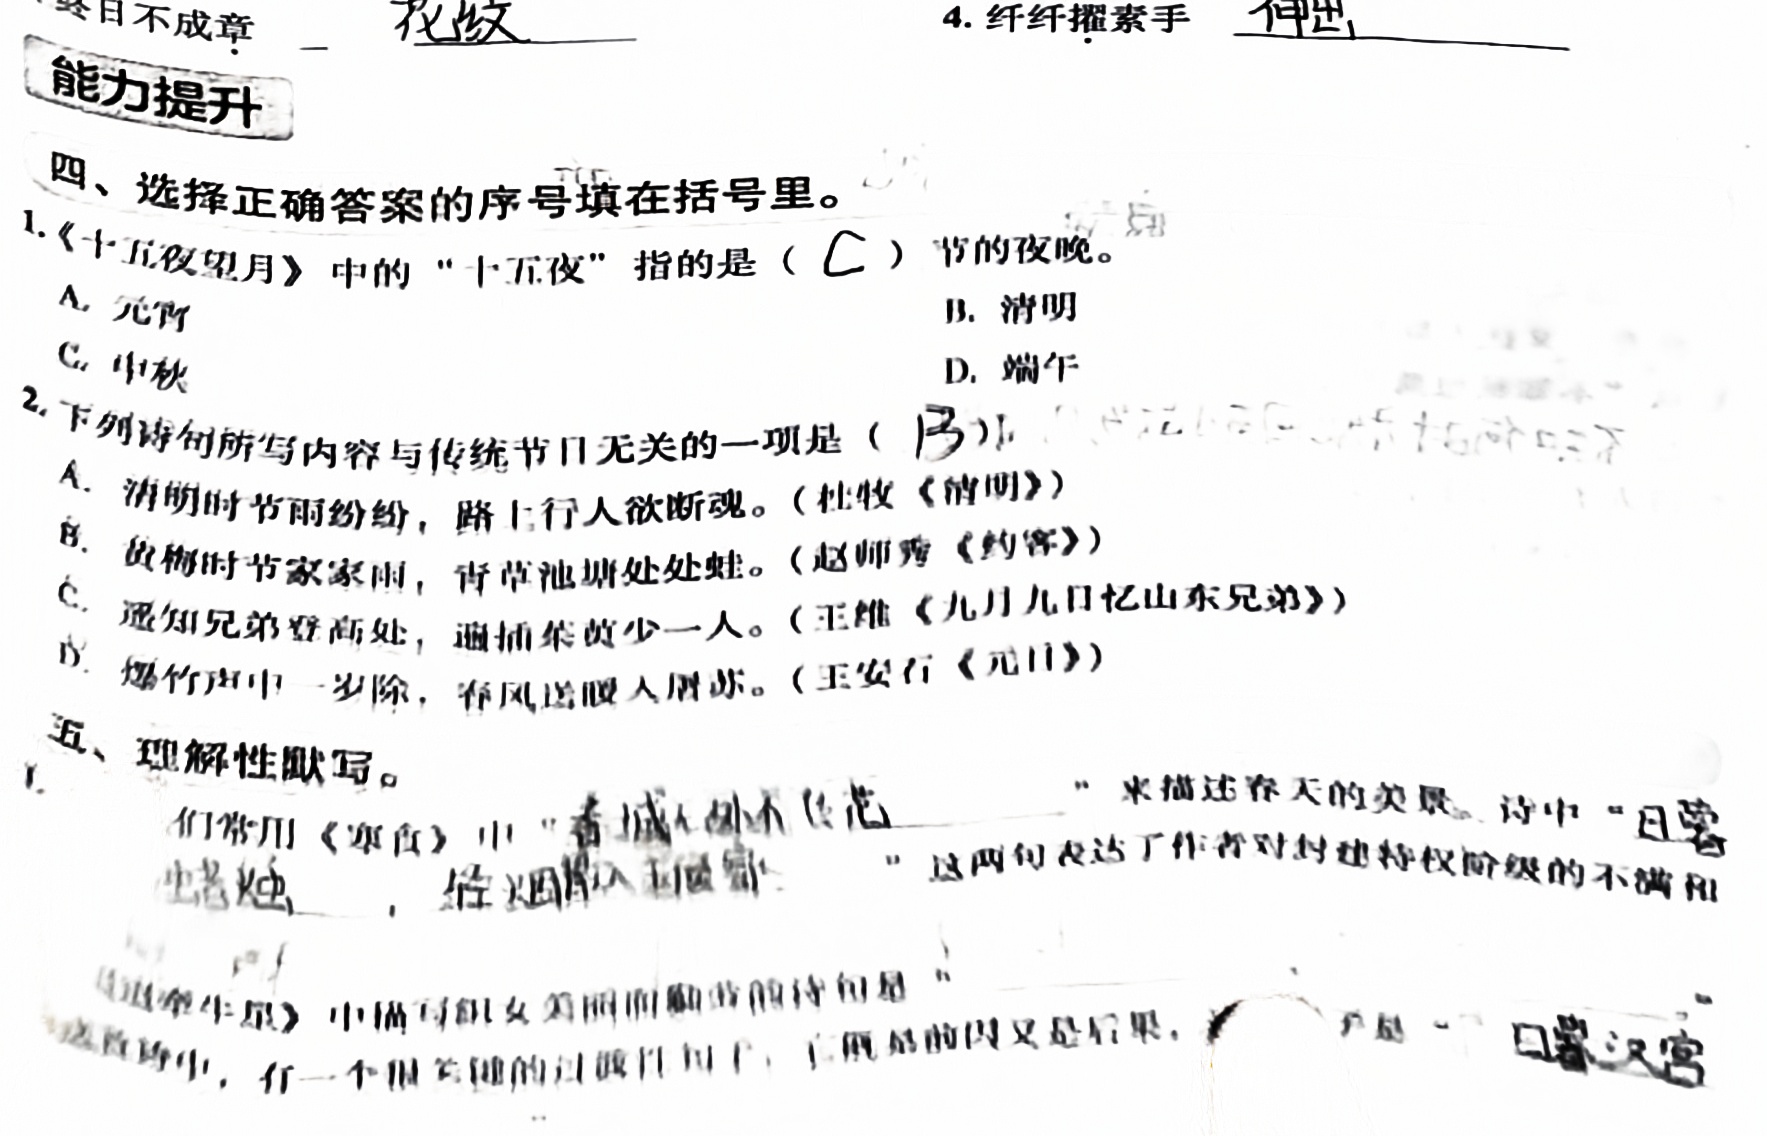 终日不成章 花纹 4. 纤纤擢素手 伸出
能力提升
四、选择正确答案的序号填在括号里。
1.《十五夜望月》中的“十五夜”指的是（ C ）节的夜晚。
A. 元宵 B. 清明
C. 中秋 D. 端午
2. 下列诗句所写内容与传统节日无关的一项是（ B ）
A. 清明时节雨纷纷，路上行人欲断魂。（杜牧《清明》）
B. 黄梅时节家家雨，青草池塘处处蛙。（赵师秀《约客》）
C. 遥知兄弟登高处，遍插茱萸少一人。（王维《九月九日忆山东兄弟》）
D. 爆竹声中一岁除，春风送暖入屠苏。（王安石《元日》）
五、理解性默写。
1.
们常用《寒食》中“春城 不 花”来描述春天的美景。诗中“日暮
烛，轻烟 入 ”这两句表达了作者对封建特权阶级的不满和
牵牛星》中描写织女美丽 的诗句是“ ”
中，有一个 的过渡性句子，它既是前因又是后果， 是“ 日暮汉宫